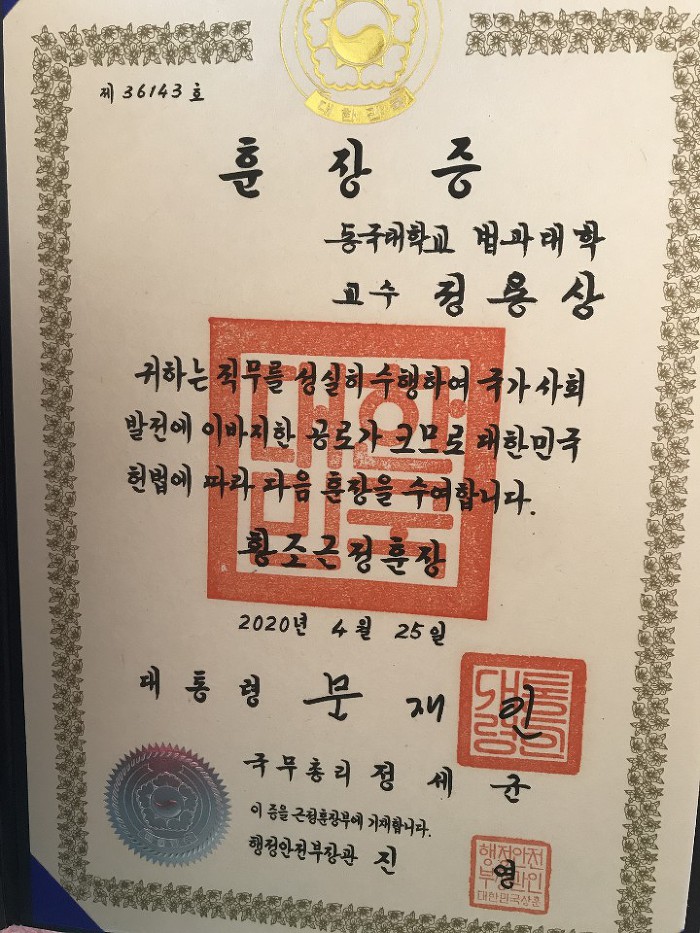 대한민국
제 36143 호
훈 장 증
동국대학교 법과대학
교수 정용상
귀하는 직무를 성실히 수행하여 국가사회
발전에 이바지한 공로가 크므로 대한민국
헌법에 따라 다음 훈장을 수여합니다.
대한
민국
황조근정훈장
2020년 4월 25일
대통령 문재인
대통
령인
국무총리 정세균
이 증을 근정훈장부에 기재합니다.
행정안전부장관 진영
행정안전
부장관인
대한민국상훈